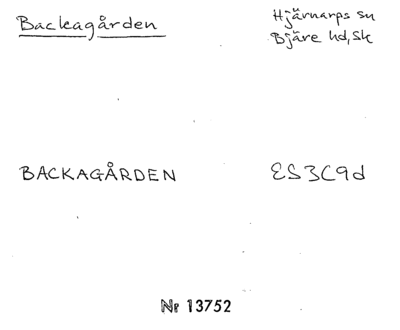 Backagården
Hjärnarps sn
Bjäre hd, Sk
BACKAGÅRDEN
ES3C9d
Nr 13752